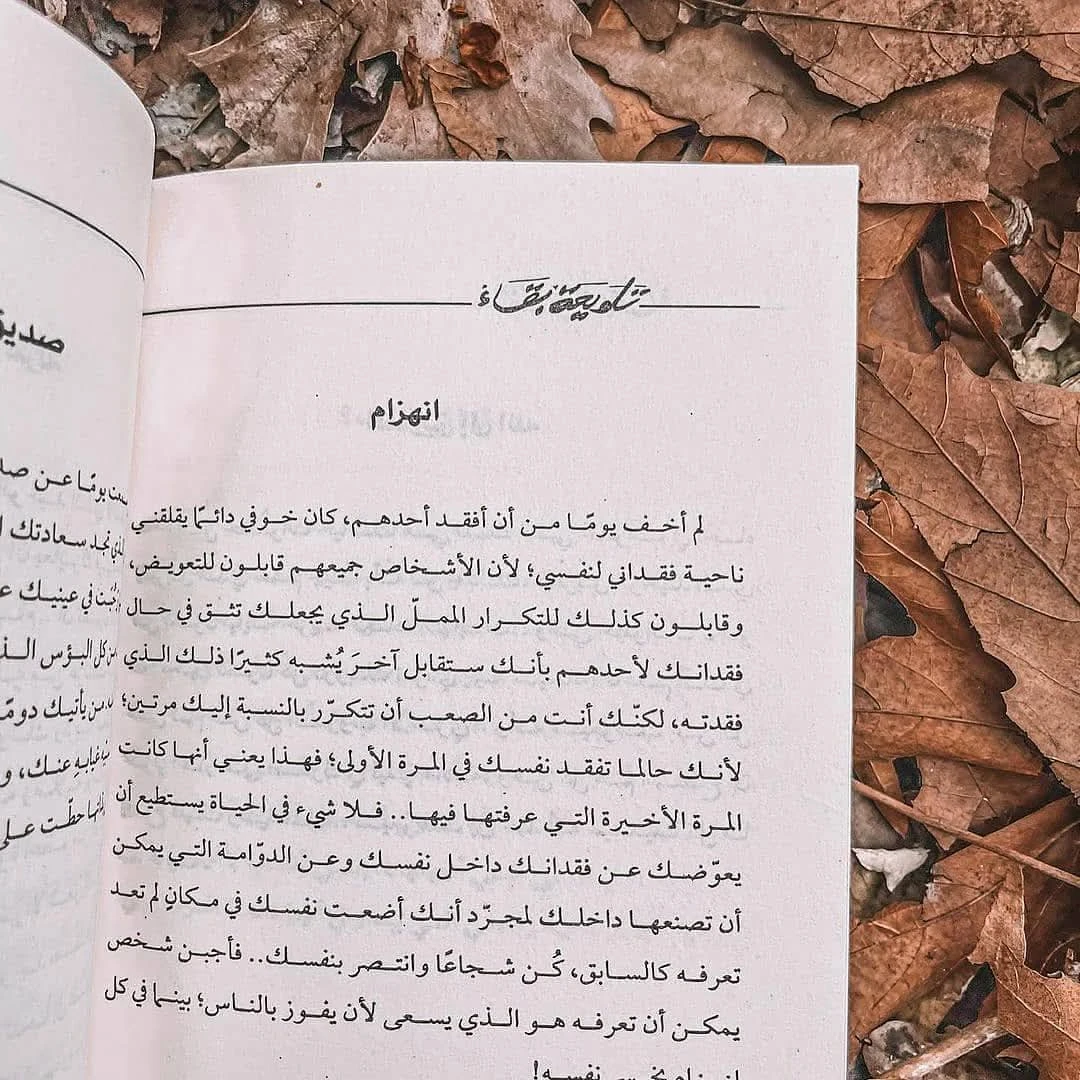 تلويحة بقاء
انهزام
لم أخف يومًا من أن أفقد أحدهم، كان خوفي دائمًا يقلقني
ناحية فقداني لنفسي؛ لأن الأشخاص جميعهم قابلون للتعويض،
وقابلون كذلك للتكرار المملّ الذي يجعلك تثق في حال
فقدانك لأحدهم بأنك ستقابل آخرَ يُشبه كثيرًا ذلك الذي
فقدته، لكنّك أنت من الصعب أن تتكرّر بالنسبة إليك مرتين؛
لأنك حالما تفقد نفسك في المرة الأولى؛ فهذا يعني أنها كانت
المرة الأخيرة التي عرفتها فيها.. فلا شيء في الحياة يستطيع أن
يعوّضك عن فقدانك داخل نفسك وعن الدوّامة التي يمكن
أن تصنعها داخلك لمجرّد أنك أضعت نفسك في مكانٍ لم تعد
تعرفه كالسابق، كُن شجاعًا وانتصر بنفسك.. فأجبن شخص
يمكن أن تعرفه هو الذي يسعى لأن يفوز بالناس؛ بينما في كل
نفسه!
يومًا عن
نجد سعادتك
في عينيك
كل البؤس
يأتيك دومًا
غيابهِ عنك، و
حطّت على